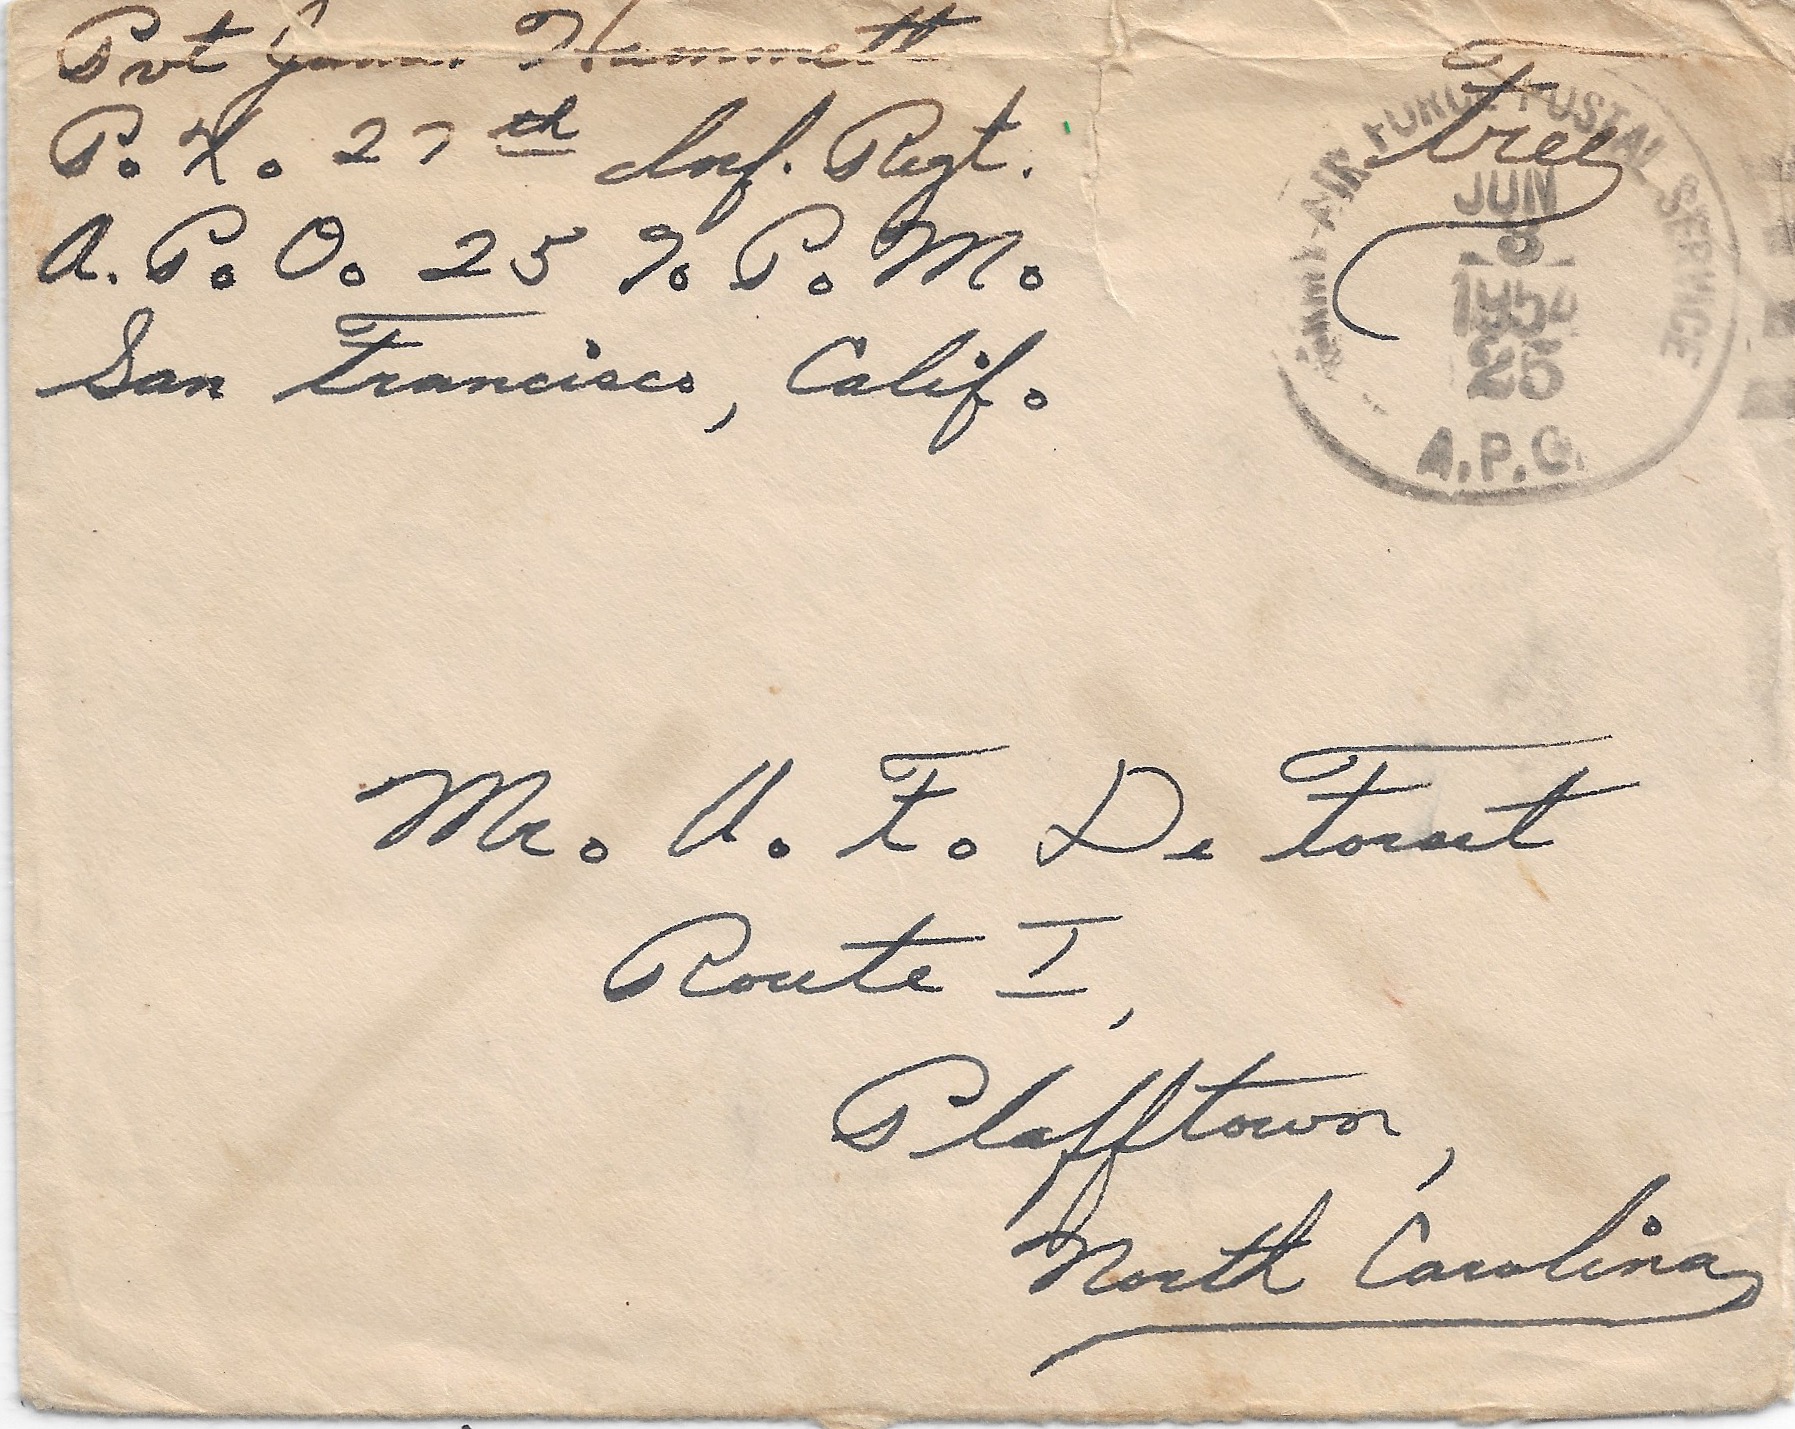 Pvt Hammett
P. X. 27th Inf. Regt.
A. P. O. 25 % P. M.
San Francisco, Calif.
Free
ARMY-AIR FORCE POSTAL SERVICE
JUN
3
195
25
A.P.O.
Mr. A. F. De Forest
Route I,
Plafftown,
North Carolina